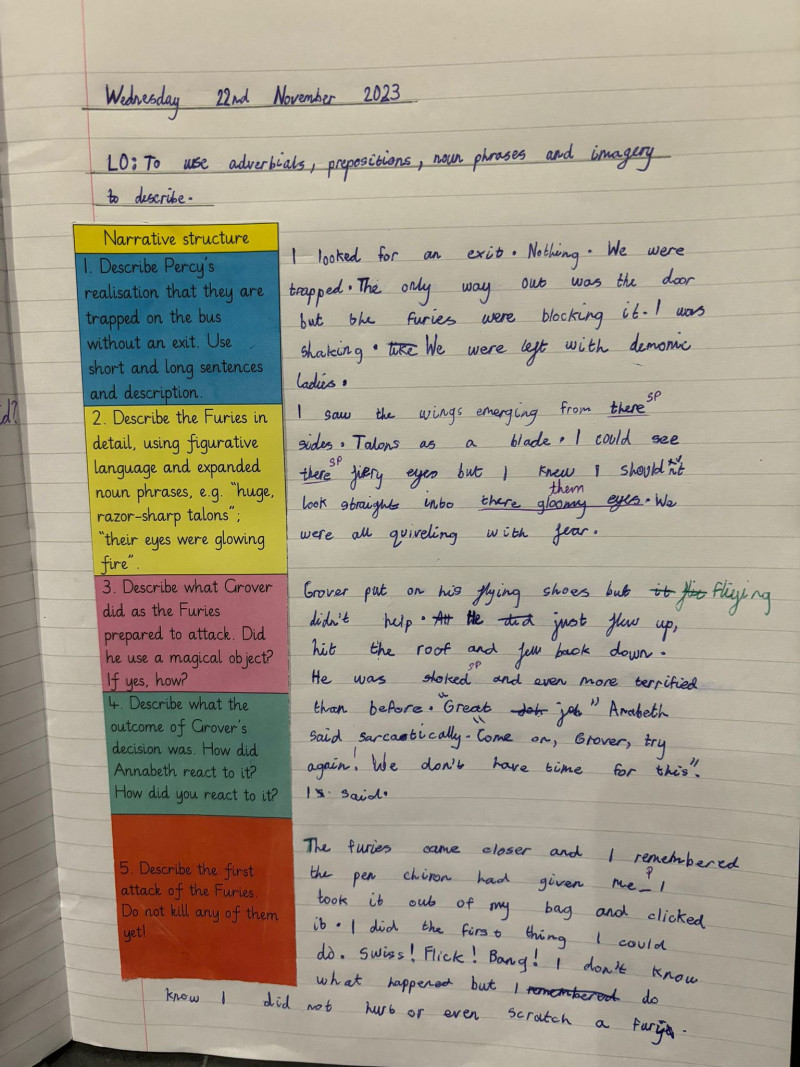 Wednesday 22nd November 2023
LO: To use adverbials, prepositions, noun phrases and imagery
to describe.
Narrative structure
1. Describe Percy's
realisation that they are
trapped on the bus
without an exit. Use
short and long sentences
and description.
I looked for an exit. Nothing. We were
trapped. The only way out was the door
but the furies were blocking it. I was
shaking. like We were left with demonic
ladies.
2. Describe the Furies in
detail, using figurative
language and expanded
noun phrases, e.g. "huge,
razor-sharp talons";
"their eyes were glowing
fire".
I saw the wings emerging from there SP
sides. Talons as a blade. I could see
there SP fiery eyes but I knew I shouldn't
look straight into there gloomy eyes. We
them
were all quiveling with fear.
3. Describe what Grover
did as the Furies
prepared to attack. Did
he use a magical object?
If yes, how?
Grover put on his flying shoes but it flie fliying
didn't help. At He did just flew up,
hit the roof and fell back down.
4. Describe what the
outcome of Grover's
decision was. How did
Annabeth react to it?
How did you react to it?
He was shoked SP and even more terrified
than before. "Great Job job" Anabeth
said sarcastically. "Come on, Grover, try
again! We don't have time for this".
I s. said.
5. Describe the first
attack of the Furies.
Do not kill any of them
yet!
The furies came closer and I remembered
the pen chiron had given me_ P I
took it out of my bag and clicked
it. I did the first thing I could
do. Swiss! Flick! Bang! I don't know
what happened but I remembered do
know I did not hurt or even scratch a
d?